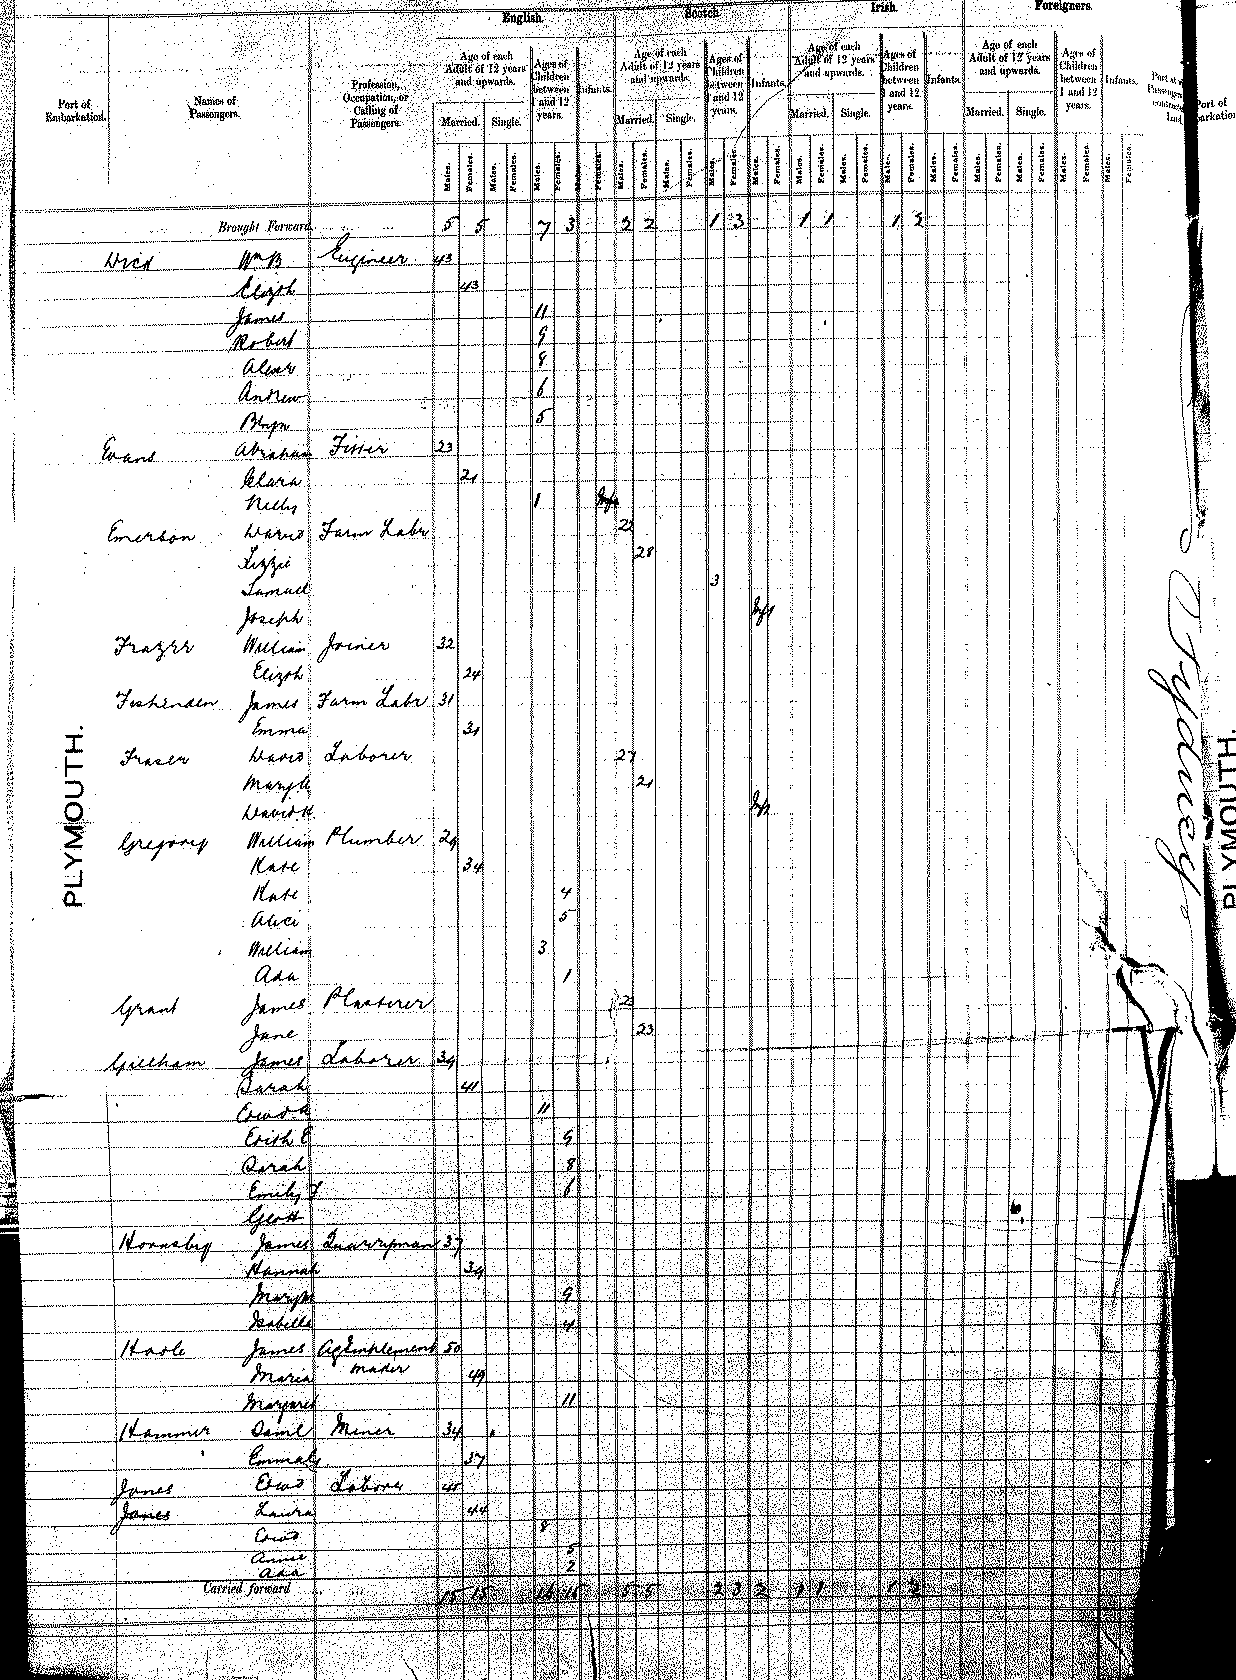 English. Scotch. Irish. Foreigners.
Port of Embarkation. Names of Passengers. Profession, Occupation, or Calling of Passengers.
Age of each Adult of 12 years and upwards. Ages of Children between 1 and 12 years. Infants. Age of each Adult of 12 years and upwards. Ages of Children between 1 and 12 years. Infants. Age of each Adult of 12 years and upwards. Ages of Children between 1 and 12 years. Infants. Age of each Adult of 12 years and upwards. Ages of Children between 1 and 12 years. Infants.
Married. Single. Married. Single. Married. Single. Married. Single.
Males. Females. Males. Females. Males. Females. Males. Females. Males. Females. Males. Females. Males. Females. Males. Females. Males. Females. Males. Females. Males. Females. Males. Females. Males. Females. Males. Females. Males. Females. Males. Females.
Brought Forward 5 5 7 3 2 2 1 3 1 1 1 2
Dick Wm B Engineer 43
Elizth 43
James 11
Robert 9
Alexr 8
Andrew 6
Benjn 5
Evans Abraham Fitter 23
Clara 21
Nelly 1 Inft
Emerson David Farm Labr
Lizzie 28
Samuel 3
Joseph Inft
Frazer William Joiner 32
Elizth 24
Fishenden James Farm Labr 31
Emma 31
Fraser David Laborer 27
21
David H Inft
Gregory William Plumber 29
Kate 34
Kate 4
Alice 5
William 3
Ada 1
Grant James Plasterer
Jane 23
Gillham James Laborer 39
Sarah 41
11
Edith E 9
Sarah 8
Emily J 6
Geo H
Hornsby James Quarryman 37
Hannah 39
9
Isabella 4
Hoole James Ag Implement maker 50
Maria 49
Margaret 11
Hammer Saml Miner 34
37
Jones Edwd Laborer
James Laura 44
Edwd 8
Annie 5
Ada 2
Carried forward 15 15 5 5 2 3 2 1 1 1 2
PLYMOUTH.
Sydney
PLYMOUTH.